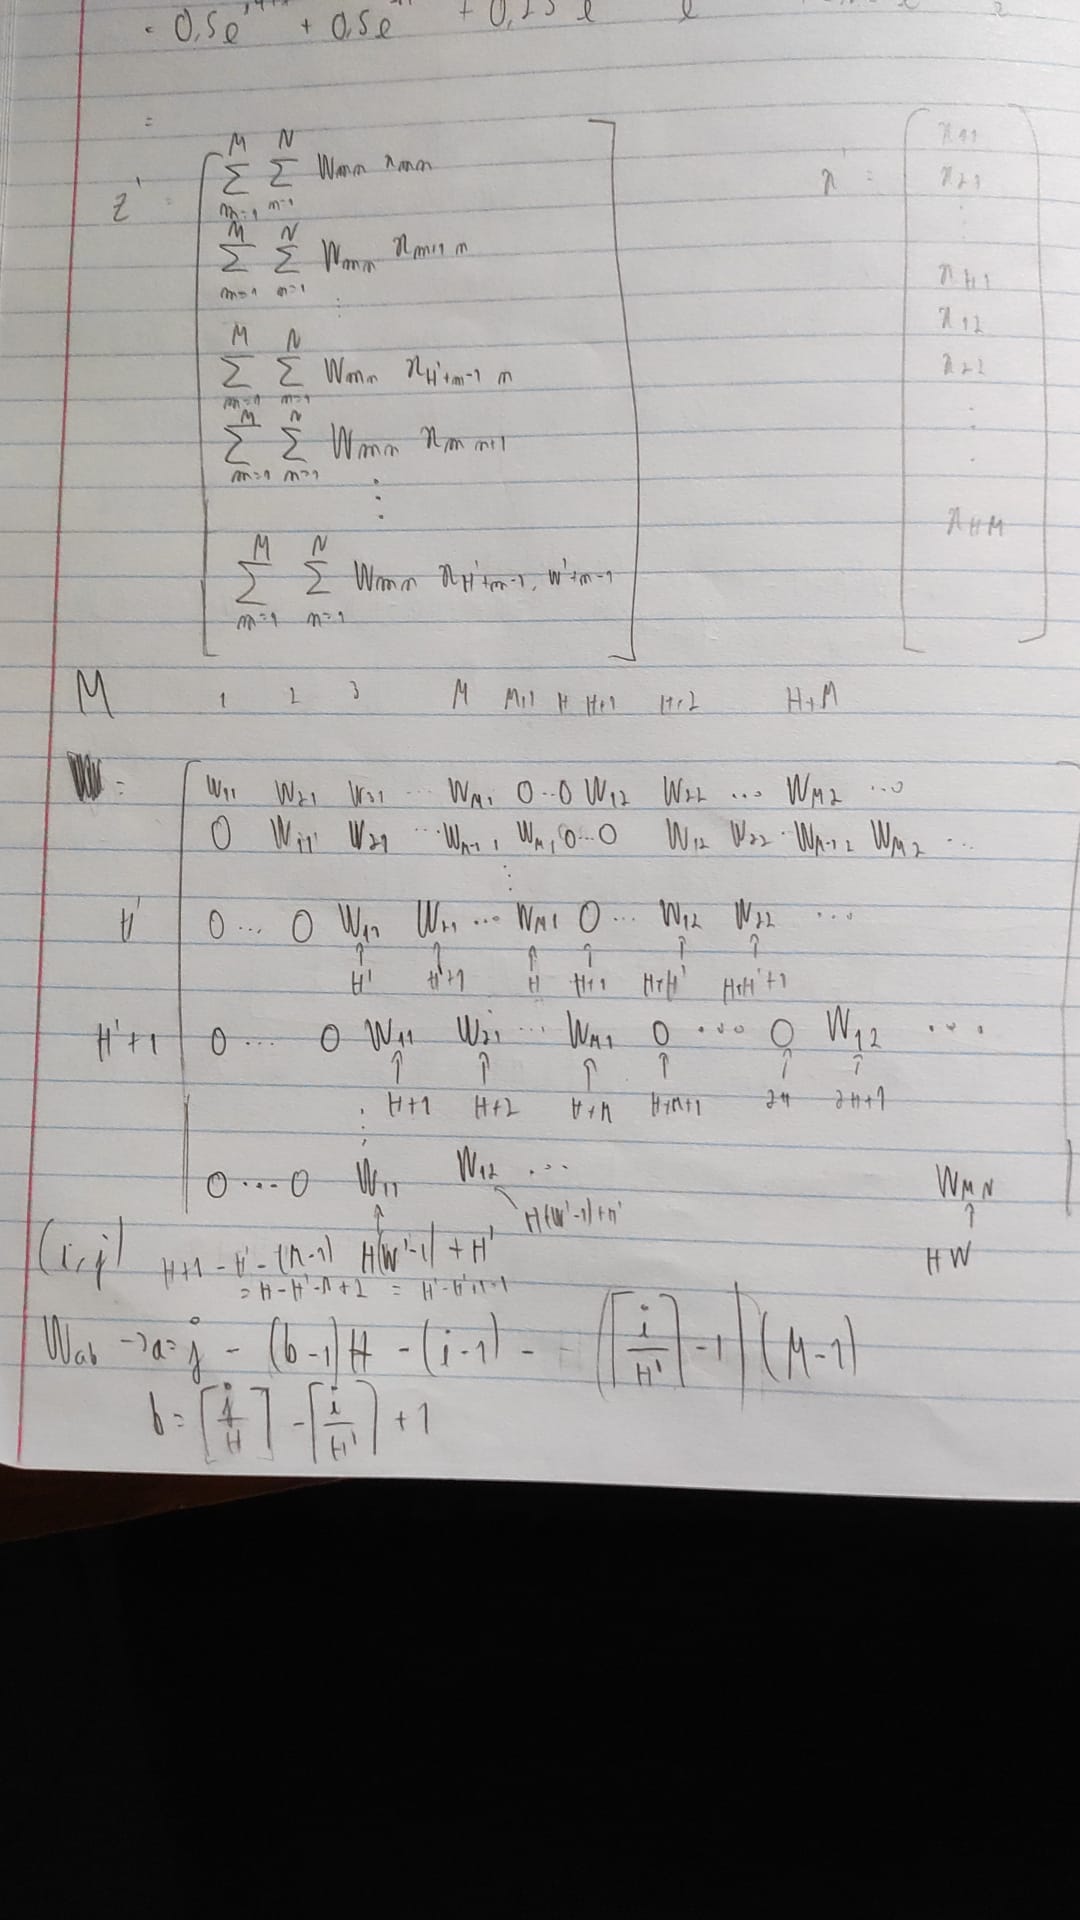 = 0,5e + 0,5e + 0,25 e e
=
z' = [ Σ_{m=1}^{M} Σ_{n=1}^{N} W_{mn} x_{mn}
Σ_{m=1}^{M} Σ_{n=1}^{N} W_{mn} x_{m+1 n}
⋮
Σ_{m=1}^{M} Σ_{n=1}^{N} W_{mn} x_{H'+m-1 n}
Σ_{m=1}^{M} Σ_{n=1}^{N} W_{mn} x_{m n+1}
⋮
Σ_{m=1}^{M} Σ_{n=1}^{N} W_{mn} x_{H'+m-1, W'+n-1} ]
x' = [ x_{11}
x_{21}
⋮
x_{H1}
x_{12}
x_{22}
⋮
x_{HM} ]
M 1 2 3 M M+1 H H+1 H+2 H+M
= [ W_{11} W_{21} W_{31} ... W_{M1} 0..0 W_{12} W_{22} ... W_{M2} ...
0 W_{11} W_{21} ... W_{M-1 1} W_{M1} 0...0 W_{12} W_{22} . W_{M-1 2} W_{M2} ...
⋮
H' 0... 0 W_{11} W_{21} ... W_{M1} 0... W_{12} W_{22} ...
↑ ↑ ↑ ↑ ↑ ↑
H' H'+1 H H+1 H+H' H+H'+1
H'+1 0... 0 W_{11} W_{21} ... W_{M1} 0 ... 0 W_{12} ...
↑ ↑ ↑ ↑ ↑ ↑
H+1 H+2 H+M H+M+1 2H 2H+1
⋮
0...0 W_{11} W_{12} ... W_{MN} ]
↑ H(W'-1)+H' ↑
(i,j) H+1-H'-(M-1) H(W'-1)+H' HW
= H-H'-M+2 = H'-H'+1-1
W_{ab} -> a = j - (b-1)H - (i-1) - (⌈i/H'⌉-1)(M-1)
b = ⌈j/H⌉ - ⌈i/H'⌉ + 1